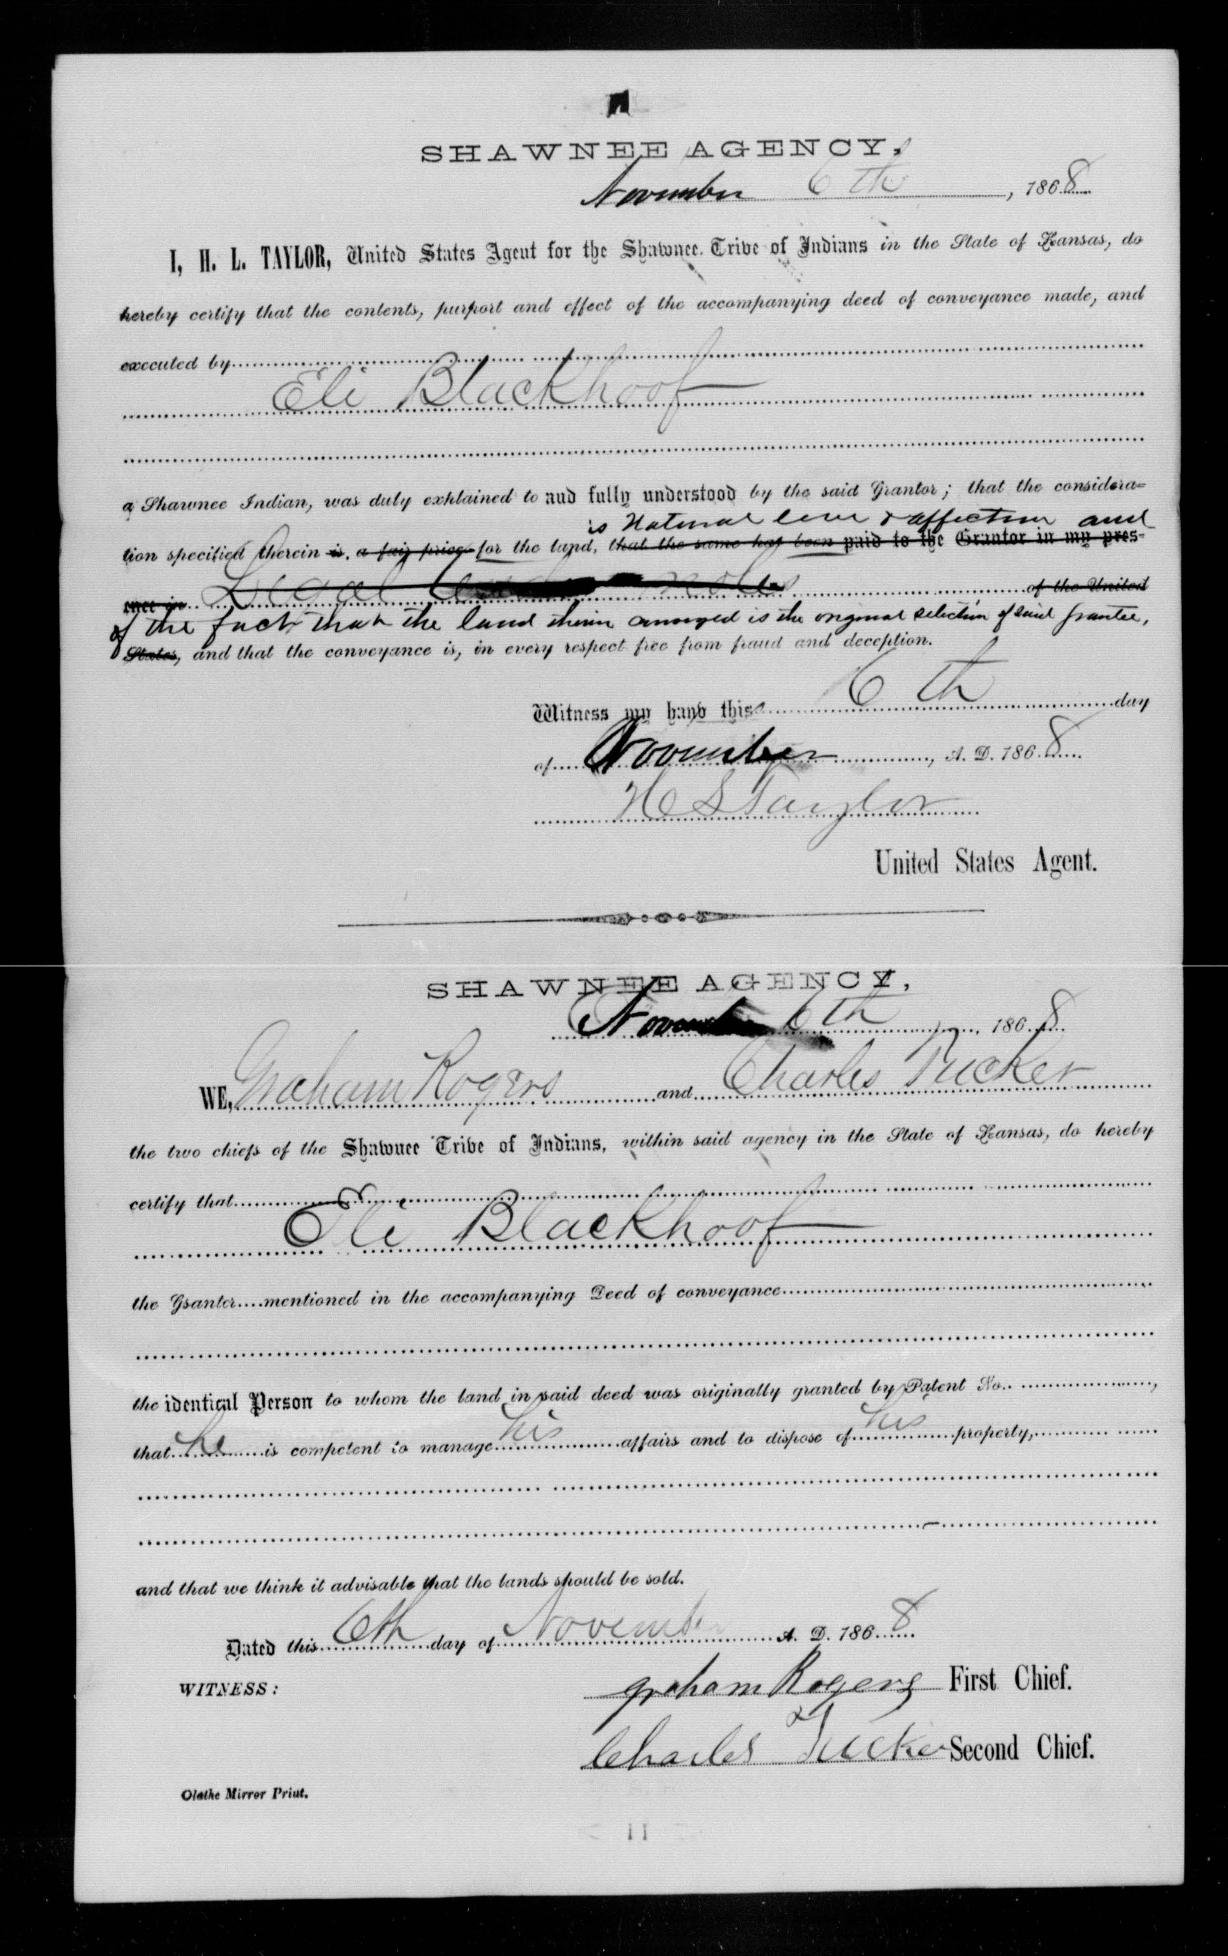 SHAWNEE AGENCY,
November 6th, 1868
I, H. L. TAYLOR, United States Agent for the Shawnee Tribe of Indians in the State of Kansas, do
hereby certify that the contents, purport and effect of the accompanying deed of conveyance made, and
executed by
Eli Blackhoof
a Shawnee Indian, was duly exhlained to and fully understood by the said Grantor; that the considera=
is Natural love & affection and
tion specified therein is, a fair price for the land, that the same has been paid to the Grantor in my pres=
ence in Legal notes of the United
of the fact that the land therein conveyed is the original selection of said grantee,
States, and that the conveyance is, in every respect free from fraud and deception.
Witness my hand this 6th day
of November, A. D. 1868
H L Taylor
United States Agent.
SHAWNEE AGENCY,
November 6th, 1868
WE, Graham Rogers and Charles Tucker
the two chiefs of the Shawnee Tribe of Indians, within said agency in the State of Kansas, do hereby
certify that
Eli Blackhoof
the Grantor mentioned in the accompanying Deed of conveyance
the identical Person to whom the land in said deed was originally granted by Patent No.,
that he is competent to manage his affairs and to dispose of his property,
and that we think it advisable that the lands should be sold.
Dated this 6th day of November A. D. 1868
WITNESS: Graham Rogers First Chief.
Charles Tucker Second Chief.
Olathe Mirror Print.